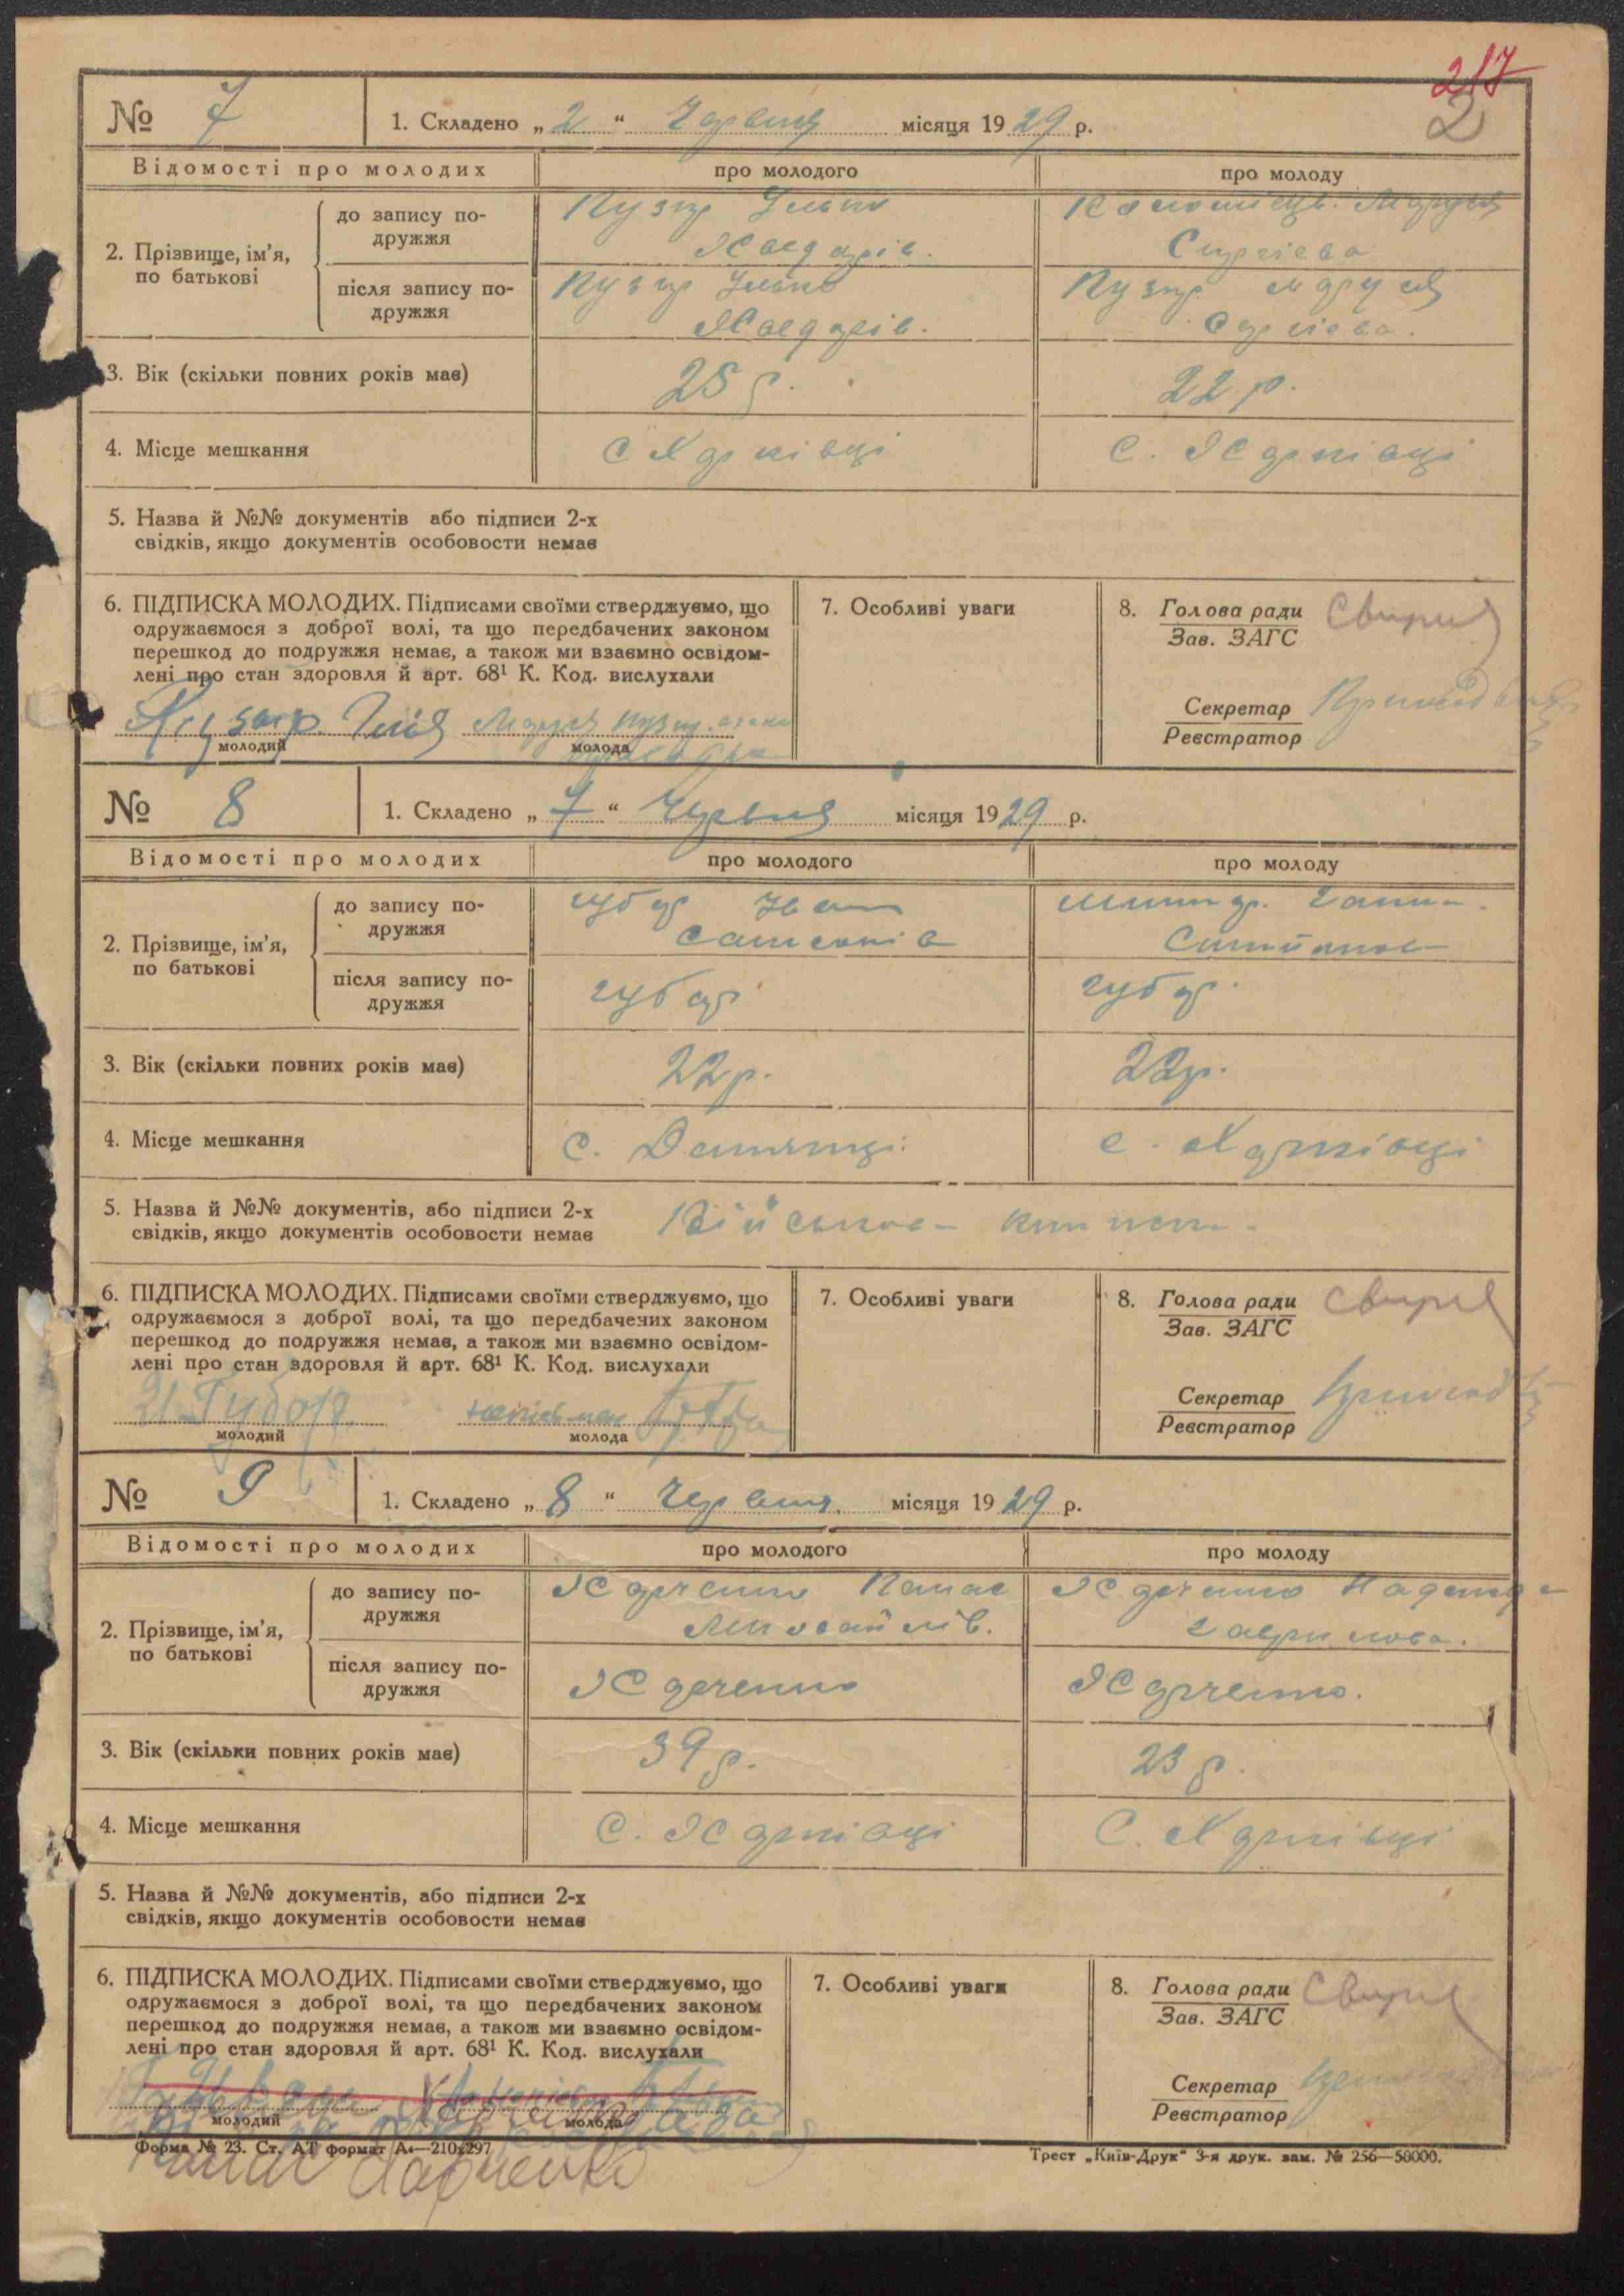 217
2
№ 7
1. Складено „ 2 “ Червня місяця 19 29 р.
Відомості про молодих
про молодого
про молоду
2. Прізвище, ім’я, по батькові
до запису по-
дружжя
Кузир Улько
Коломієць Маруся
Сергієва
після запису по-
дружжя
Кузир Улько
Кузир Маруся
Сергієва.
3. Вік (скільки повних років має)
25 р.
22 р.
4. Місце мешкання
с Харківці
с. Харківці
5. Назва й №№ документів або підписи 2-х
свідків, якщо документів особовости немає
6. ПІДПИСКА МОЛОДИХ. Підписами своїми стверджуємо, що
одружаємося з доброї волі, та що передбачених законом
перешкод до подружжя немає, а також ми взаємно освідом-
лені про стан здоровля й арт. 68¹ К. Код. вислухали
молодий
молода
7. Особливі уваги
8. Голова ради
Зав. ЗАГС
Секретар
Реєстратор
№ 8
1. Складено „ 7 “ Червня місяця 19 29 р.
Відомості про молодих
про молодого
про молоду
2. Прізвище, ім’я,
по батькові
до запису по-
дружжя
Губар Іван
Самсонів
Ганна
після запису по-
дружжя
Губар
Губар
3. Вік (скільки повних років має)
22 р.
22 р.
4. Місце мешкання
с.
с. Харківці
5. Назва й №№ документів, або підписи 2-х
свідків, якщо документів особовости немає
Військова книжка
6. ПІДПИСКА МОЛОДИХ. Підписами своїми стверджуємо, що
одружаємося з доброї волі, та що передбачених законом
перешкод до подружжя немає, а також ми взаємно освідом-
лені про стан здоровля й арт. 68¹ К. Код. вислухали
И. Губарь
молодий
молода
7. Особливі уваги
8. Голова ради
Зав. ЗАГС
Секретар
Реєстратор
№ 9
1. Складено „ 8 “ Червня місяця 19 29 р.
Відомості про молодих
про молодого
про молоду
2. Прізвище, ім’я,
по батькові
до запису по-
дружжя
Харченко Панас
Михайлів.
Харченко Надежда
Гаврилова.
після запису по-
дружжя
Харченко
Харченко.
3. Вік (скільки повних років має)
39 р.
23 р.
4. Місце мешкання
с. Харківці
с. Харківці
5. Назва й №№ документів, або підписи 2-х
свідків, якщо документів особовости немає
6. ПІДПИСКА МОЛОДИХ. Підписами своїми стверджуємо, що
одружаємося з доброї волі, та що передбачених законом
перешкод до подружжя немає, а також ми взаємно освідом-
лені про стан здоровля й арт. 68¹ К. Код. вислухали
молодий
молода
Харченко
7. Особливі уваги
8. Голова ради
Зав. ЗАГС
Секретар
Реєстратор
Форма № 23. Ст. АТ формат А₄—210x297
Трест „Київ-Друк“ 3-я друк. зам. № 256—50000.